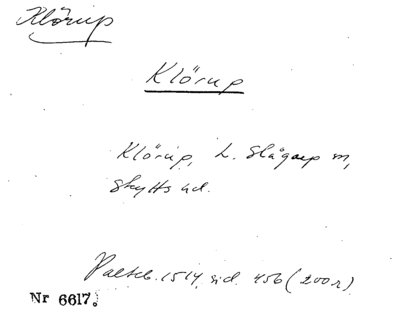 Klörup
Klörup
Klörup, L. Slågarp sn,
Skytts hd.
Palteb. 1514, sid. 456 (200r)
Nr 6617.